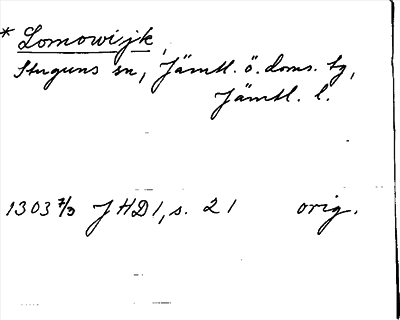 * Lomowijk,
Stuguns sn, Jämtl. ö. doms. tg,
Jämtl. l.
1303 7/3 JHD1, s. 21 orig.